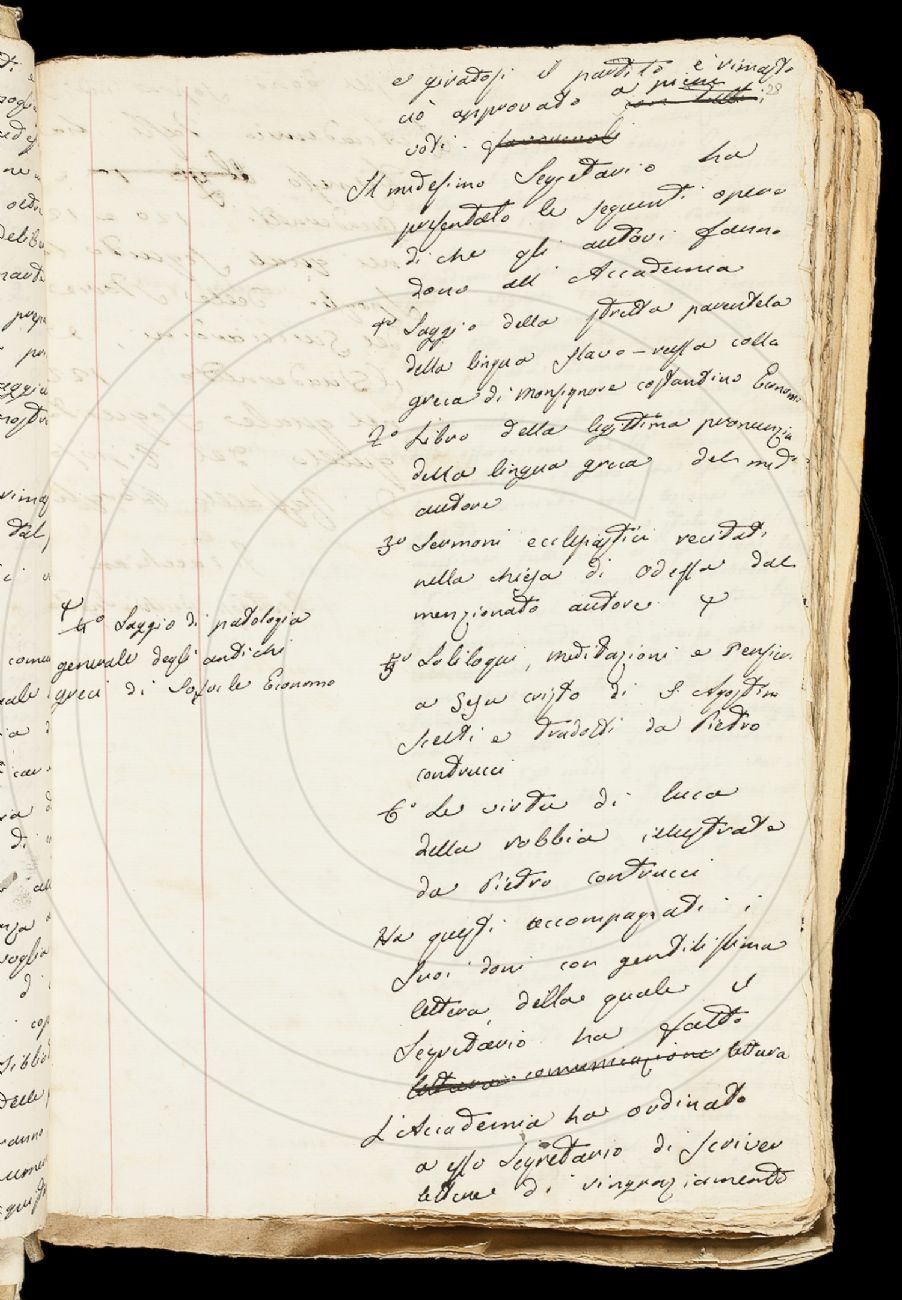 e giratosi il partito è rimasto
28
ciò approvato a pieni con tutti i
voti favorevoli
Il medesimo Segretario ha
presentato le seguenti opere
di che gli autori fanno
dono all'Accademia
1º Saggio della stretta parentela
della lingua slavo-russa colla
greca di Monsignore costantino Economo
2º Libro della legittima pronunzia
della lingua greca del med.º
autore
3º Sermoni ecclesiastici recitati
nella chiesa di Odessa dal
menzionato autore
4º Saggio di patologia
generale degli antichi
greci di Sofocle Economo
5º Soliloqui, meditazioni e Pensieri
a Gesu cristo di S. Agostino
scelti e tradotti da Pietro
contrucci
6º Le virtu di luca
della robbia illustrate
da Pietro contrucci
Ha questi accompagnati i
suoi doni con gentilissima
lettera, della quale il
Segretario ha fatto
lettura comunicazione lettura
L'Accademia ha ordinato
a esso Segretario di scriver
lettere di ringraziamento